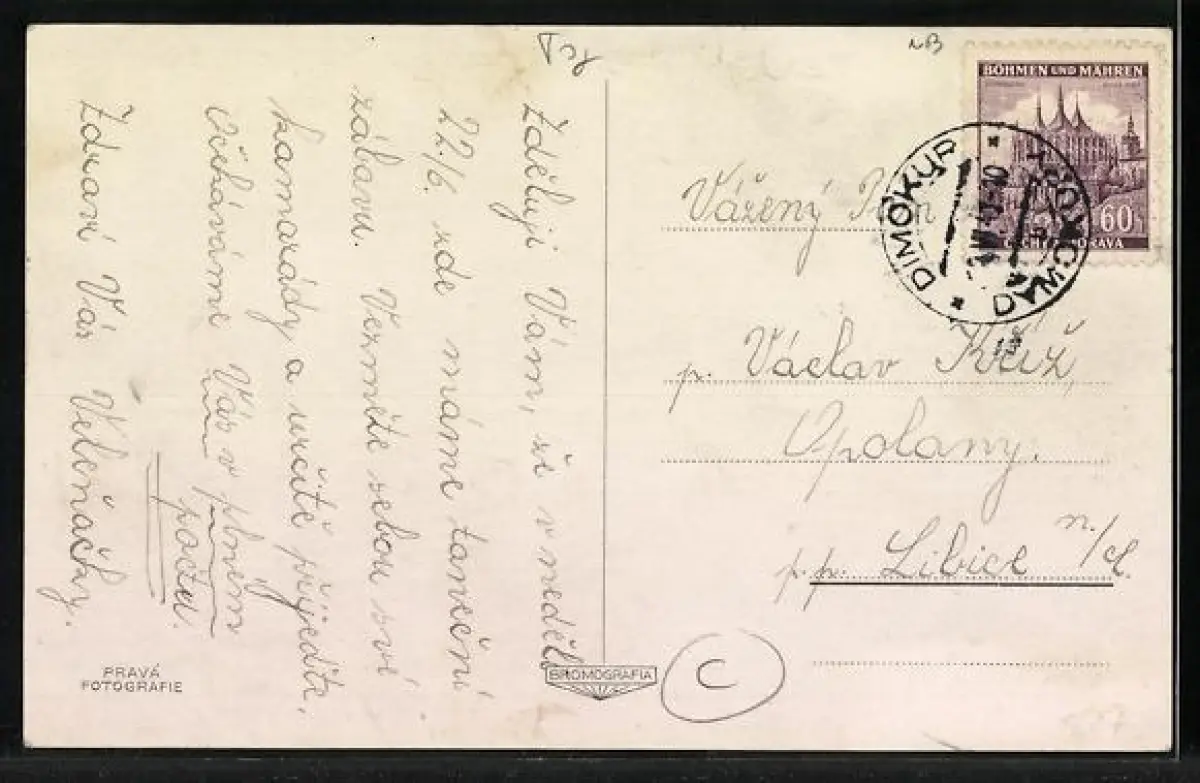 Zděluji Vám, že v neděli
22./6. zde máme taneční
zábavu. Vezměte sebou své
kamarády a určitě přijeďte.
Očekáváme Vás v plném
počtu.
Zdraví Vás Velenáčky.
PRAVÁ
FOTOGRAFIE
BROMOGRAFIA
BÖHMEN UND MÄHREN
60
ČECHY MORAVA
DIMOKUR
DYMOKURY
Vážený Pan
p. Václav Kříž,
Opolany.
p. p. Libice n./C.
C